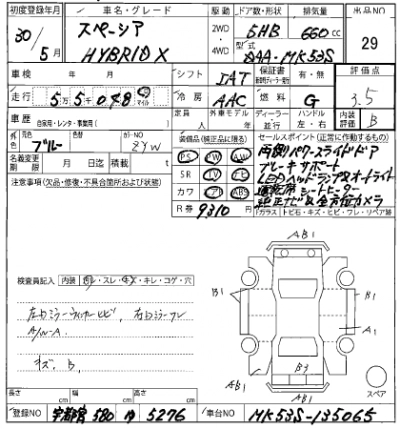 初度登録年月 車名・グレード 駆動 ドア数・形状 排気量 出品NO
30年 5月 スペーシア HYBRID X 2WD・4WD 5HB 660cc 29
型式 DAA-MK53S
車検 年 月 シフト IAT 保証書 有・無 評価点
走行 55048 マイル 冷房 AAC 燃料 G 3.5
定員 人 外車モデル 年 ディーラー・並行 ハンドル 左・右 内装評価 B
車歴 自家用・レンタ・事業用
外色 ブルー カラーNO ZYW
名義変更期限 月 日迄 積載 t
装備品(純正品に限る)
PS PW AW
SR TV ナビ
カワ エアB ABS
R券 9310円
セールスポイント(正常に作動するもの)
両側パワースライドドア
ブレーキサポート
LEDヘッドランプ&オートライト
運転席シートヒーター
純正ナビ&全方位カメラ
注意事項(欠品・修復・不具合箇所および状態)
ガラス トビ石・キズ・ヒビ・ワレ・リペア跡
検査員記入 内装 スレ・キレ・コゲ・穴
左ドアミラーウィンカーヒビ、右ドアミラーワレ
A/W-A
キズ、B
AB1
B1 B1
A1
B3
AB1 AB1
スペア
長さ cm 幅 cm 高さ cm
登録NO 宇都宮 580 ゆ 5276 車台NO MK53S-135065